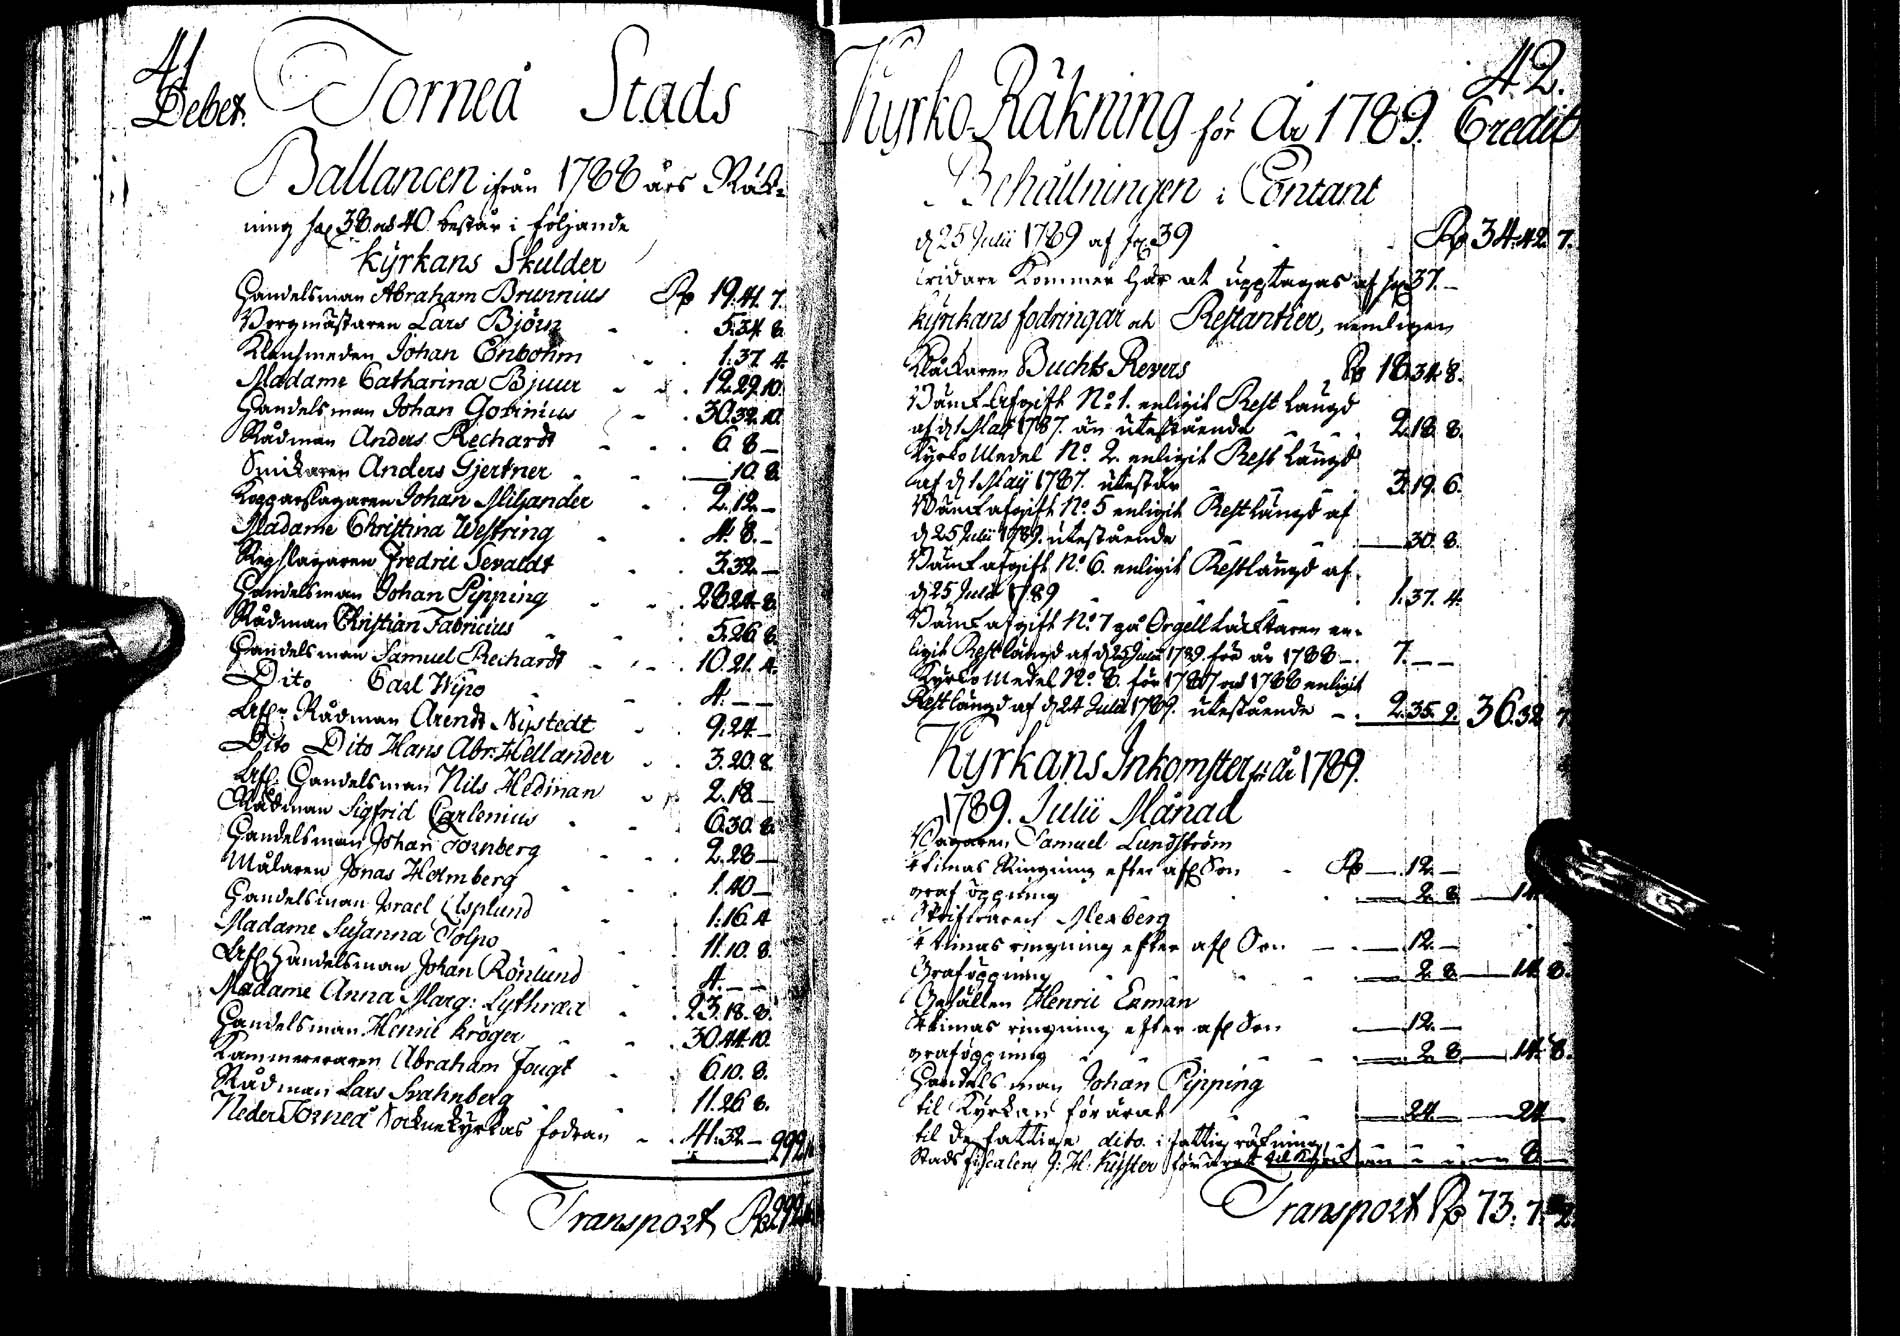 41
Debet. Torneå Stads
Ballancen ifrån 1788 års Räk-
ning pag 38 och 40 består i följande
Kyrkans Skulder
Handelsman Abraham Brunnius Rd 19.41.7.
Borgmästaren Lars Björn 5.34.8.
Klensmeden Johan Enbohm 1.37.4
Madame Catharina Bjuur 12.29.10.
Handelsman Johan Govinius 30.32.10.
Rådman Anders Rechardt 6.8.—
Snickaren Anders Gjertner —10.8.
Kopparslagaren Johan Miljander 2.12.—
Madame Christina Westring 4.8.—
Repslagaren Fredric Sevaldt 3.32.—
Handelsman Johan Pipping 28.24.8.
Rådman Christian Fabricius 5.26.8.
Handelsman Samuel Reichardt 10.21.4.
Dito Carl Wipo 4.——
Rådman Arendt Nystedt 9.24.—
Dito Dito Hans Abr: Hellander 3.20.8.
Handelsman Nils Hedman 2.18.—
Rådman Sigfrid Carlenius 6.30.8.
Handelsman Johan Tornberg 2.28.—
Målaren Jonas Holmberg 1.40.—
Handelsman Israel Asplund 1.16.4
Madame Susanna Tolpo 11.10.8.
Handelsman Johan Rönlund 4.——
Madame Anna Marg: Lythræa 23.18.8.
Handelsman Henric Kröger 30.44.10.
Kammereraren Abraham Fougt 6.10.8.
Rådman Lars Svahnberg 11.26.8.
Neder Torneå Sockne Kyrkas fodran 41.32.— 292
Transport Rd 292
42.
Kyrko Räkning för År 1789. Credit
Behållningen i Contant
d 25 Julii 1789 af pag 39 Rd 34.42.7.
vidare Kommer här at upptagas af pag 37.—
Kyrkans fodringar och Restantier, nemligen
Klåckaren Buchts Revers Rd 18.34.8.
Bänk Afgift No 1. enligit Rest Längd
af d 1 Maij 1787. än utestående 2.18.8.
Kyrko Medel No 2 enligit Rest Längd
af d 1 Maij 1787. utestår 3.19.6.
Bänk afgift No 5 enligit Restlängd af
d 25 Julii 1789. utestående —30.8.
Bänk afgift No 6. enligit Restlängd af
d 25 Julii 1789 1.37.4.
Bänk afgift No 7 på Orgell Läcktaren en-
ligit Restlängd af d 25 Julii 1789. för år 1788 7.——
Kyrko Medel No 8. för 1787 och 1788 enligit
Restlängd af d 24 Julii 1789. utestående 2.35.9. 36.32.7.
Kyrkans Inkomster för år 1789.
1789. Julii Månad
Samuel Lundström
timas Ringning efter afl Son Rd —12.—
graf öppning —2.8. —14.
Mexberg
timas ringning efter afl Son —12.—
Graföppning —2.8. —14.8.
Gesällen Henric Exman
timas ringning efter afl Son —12.—
graföppning —2.8. —14.8.
Handelsman Johan Pipping
til Kyrkan förärat —24.— —24.—
til de fattige dito. i fattig räkning
Stads fiscalen J: H: Kyster förärat til Kyrkan — 8.—
Transport Rd 73.7.2.